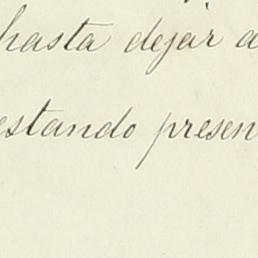 hasta dejar a
estando presen